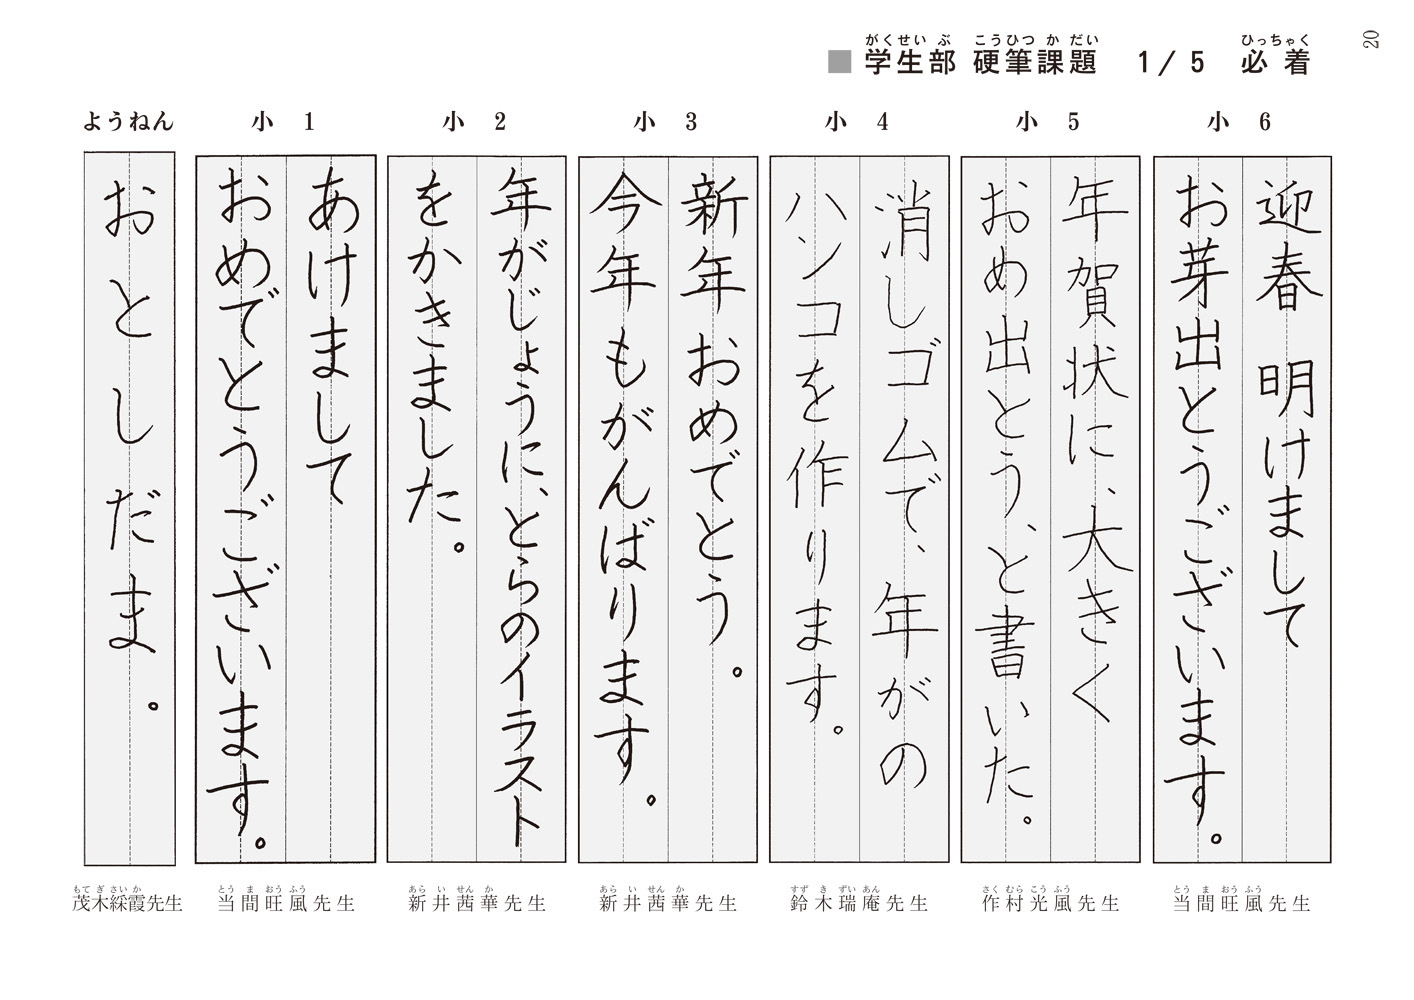 20
■学生部 硬筆課題 1/5 必着
がくせいぶ こうひつかだい ひっちゃく
小6
迎春 明けまして
お芽出とうございます。
当間旺風先生
とうまおうふう
小5
年賀状に、大きく
おめ出とう、と書いた。
作村光風先生
さくむらこうふう
小4
消しゴムで、年がの
ハンコを作ります。
鈴木瑞庵先生
すずきずいあん
小3
新年おめでとう。
今年もがんばります。
新井茜華先生
あらいせんか
小2
年がじょうに、とらのイラスト
をかきました。
新井茜華先生
あらいせんか
小1
あけまして
おめでとうございます。
当間旺風先生
とうまおうふう
ようねん
おとしだま。
茂木綵霞先生
もてぎさいか